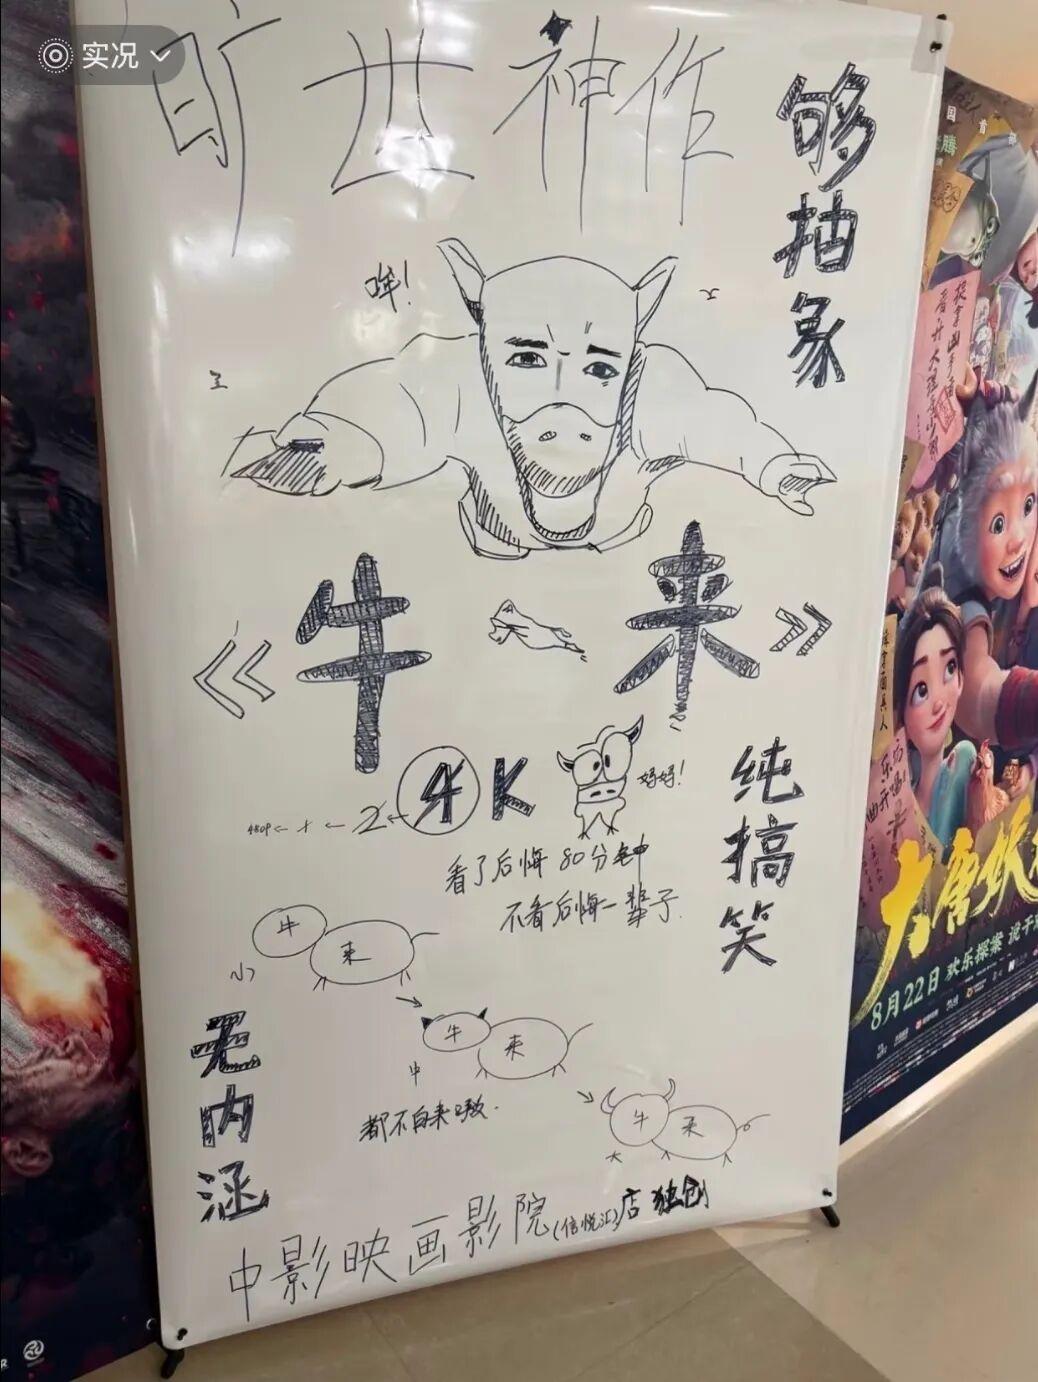 实况
旷世神作
够抽象
哞!
《牛来》
480P←1←2←4K
妈妈!
纯搞笑
看了后悔80分钟
不看后悔一辈子.
牛 来
小
牛 来
中
牛 来
大
都不白来嗷.
无内涵
中影映画影院(信悦汇)店 独创
8月22日 欢乐探案